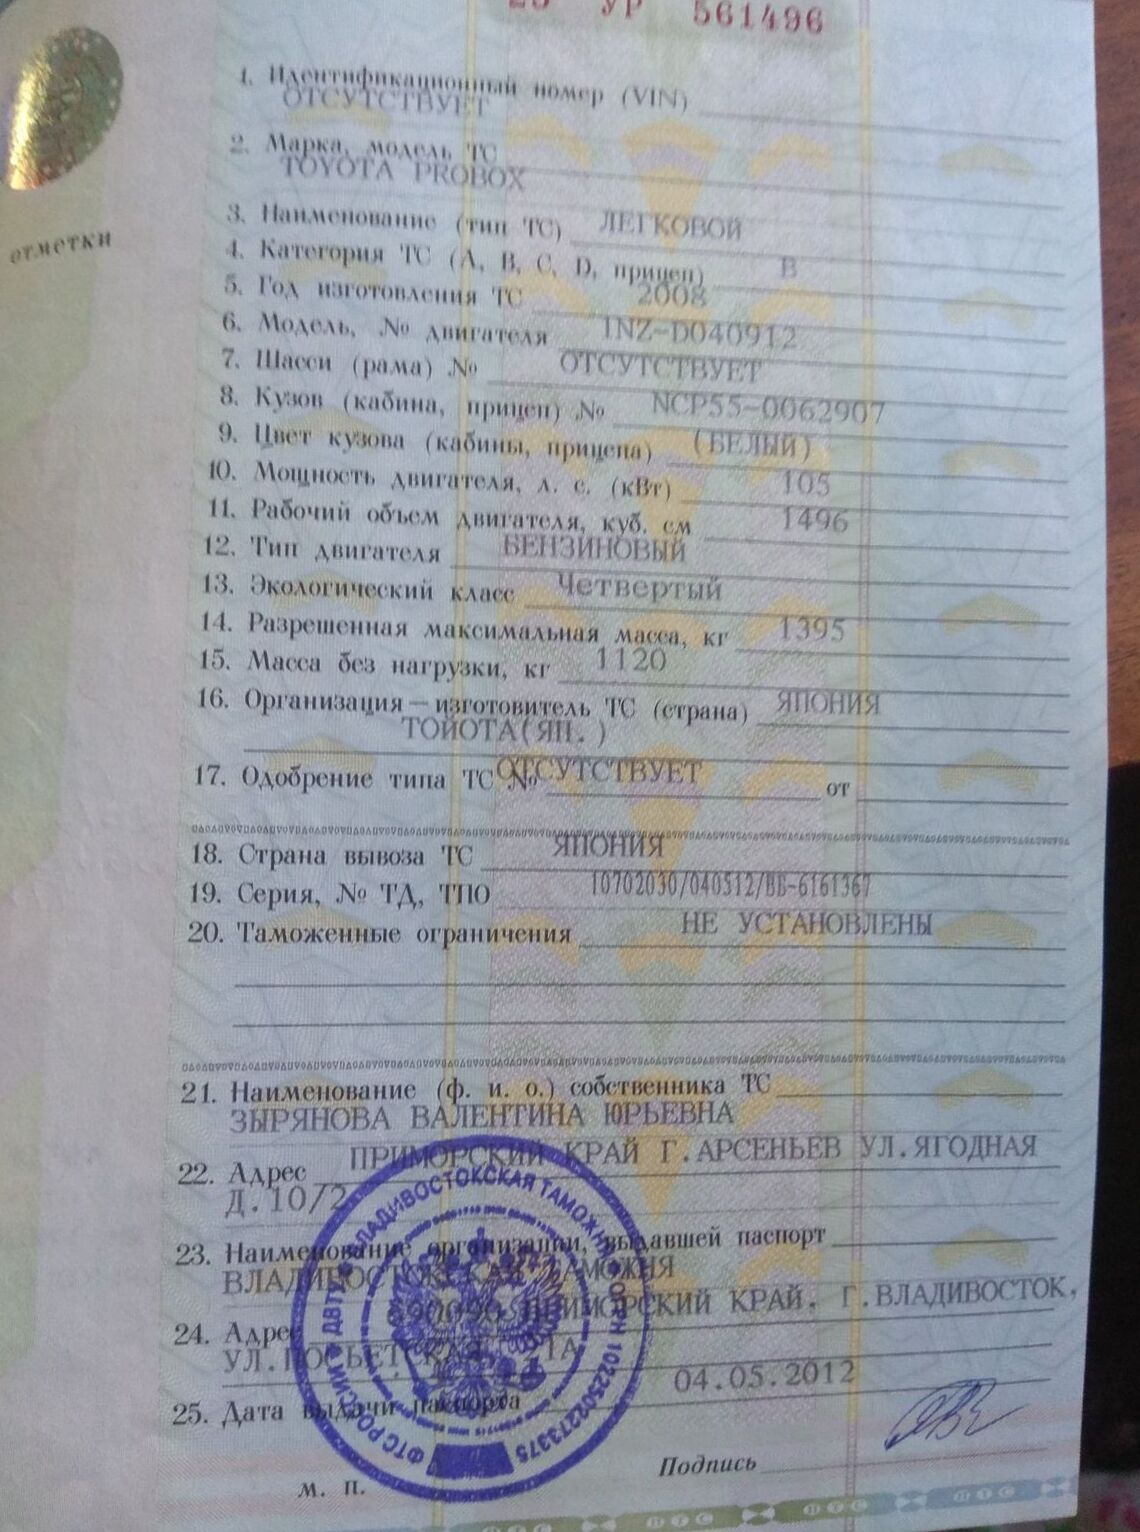 25 УР 561496
отметки
1. Идентификационный номер (VIN)
ОТСУТСТВУЕТ
2. Марка, модель ТС
TOYOTA PROBOX
3. Наименование (тип ТС) ЛЕГКОВОЙ
4. Категория ТС (A, B, C, D, прицеп) B
5. Год изготовления ТС 2008
6. Модель, № двигателя 1NZ-D040912
7. Шасси (рама) № ОТСУТСТВУЕТ
8. Кузов (кабина, прицеп) № NCP55-0062907
9. Цвет кузова (кабины, прицепа) (БЕЛЫЙ)
10. Мощность двигателя, л. с. (кВт) 105
11. Рабочий объем двигателя, куб. см 1496
12. Тип двигателя БЕНЗИНОВЫЙ
13. Экологический класс Четвертый
14. Разрешенная максимальная масса, кг 1395
15. Масса без нагрузки, кг 1120
16. Организация — изготовитель ТС (страна) ЯПОНИЯ
ТОЙОТА(ЯП.)
17. Одобрение типа ТС № ОТСУТСТВУЕТ от
18. Страна вывоза ТС ЯПОНИЯ
19. Серия, № ТД, ТПО 10702030/040512/ВБ-6161367
20. Таможенные ограничения НЕ УСТАНОВЛЕНЫ
21. Наименование (ф. и. о.) собственника ТС
ЗЫРЯНОВА ВАЛЕНТИНА ЮРЬЕВНА
22. Адрес ПРИМОРСКИЙ КРАЙ Г.АРСЕНЬЕВ УЛ.ЯГОДНАЯ
Д.10/2
23. Наименование организации, выдавшей паспорт
ВЛАДИВОСТОКСКАЯ ТАМОЖНЯ
24. Адрес 690090 ПРИМОРСКИЙ КРАЙ, Г.ВЛАДИВОСТОК,
УЛ.ПОСЬЕТСКАЯ, 21А
25. Дата выдачи паспорта 04.05.2012
Подпись
м. п.
ФТС РОССИИ ДВТУ ВЛАДИВОСТОКСКАЯ ТАМОЖНЯ ОГРН 1022502273375